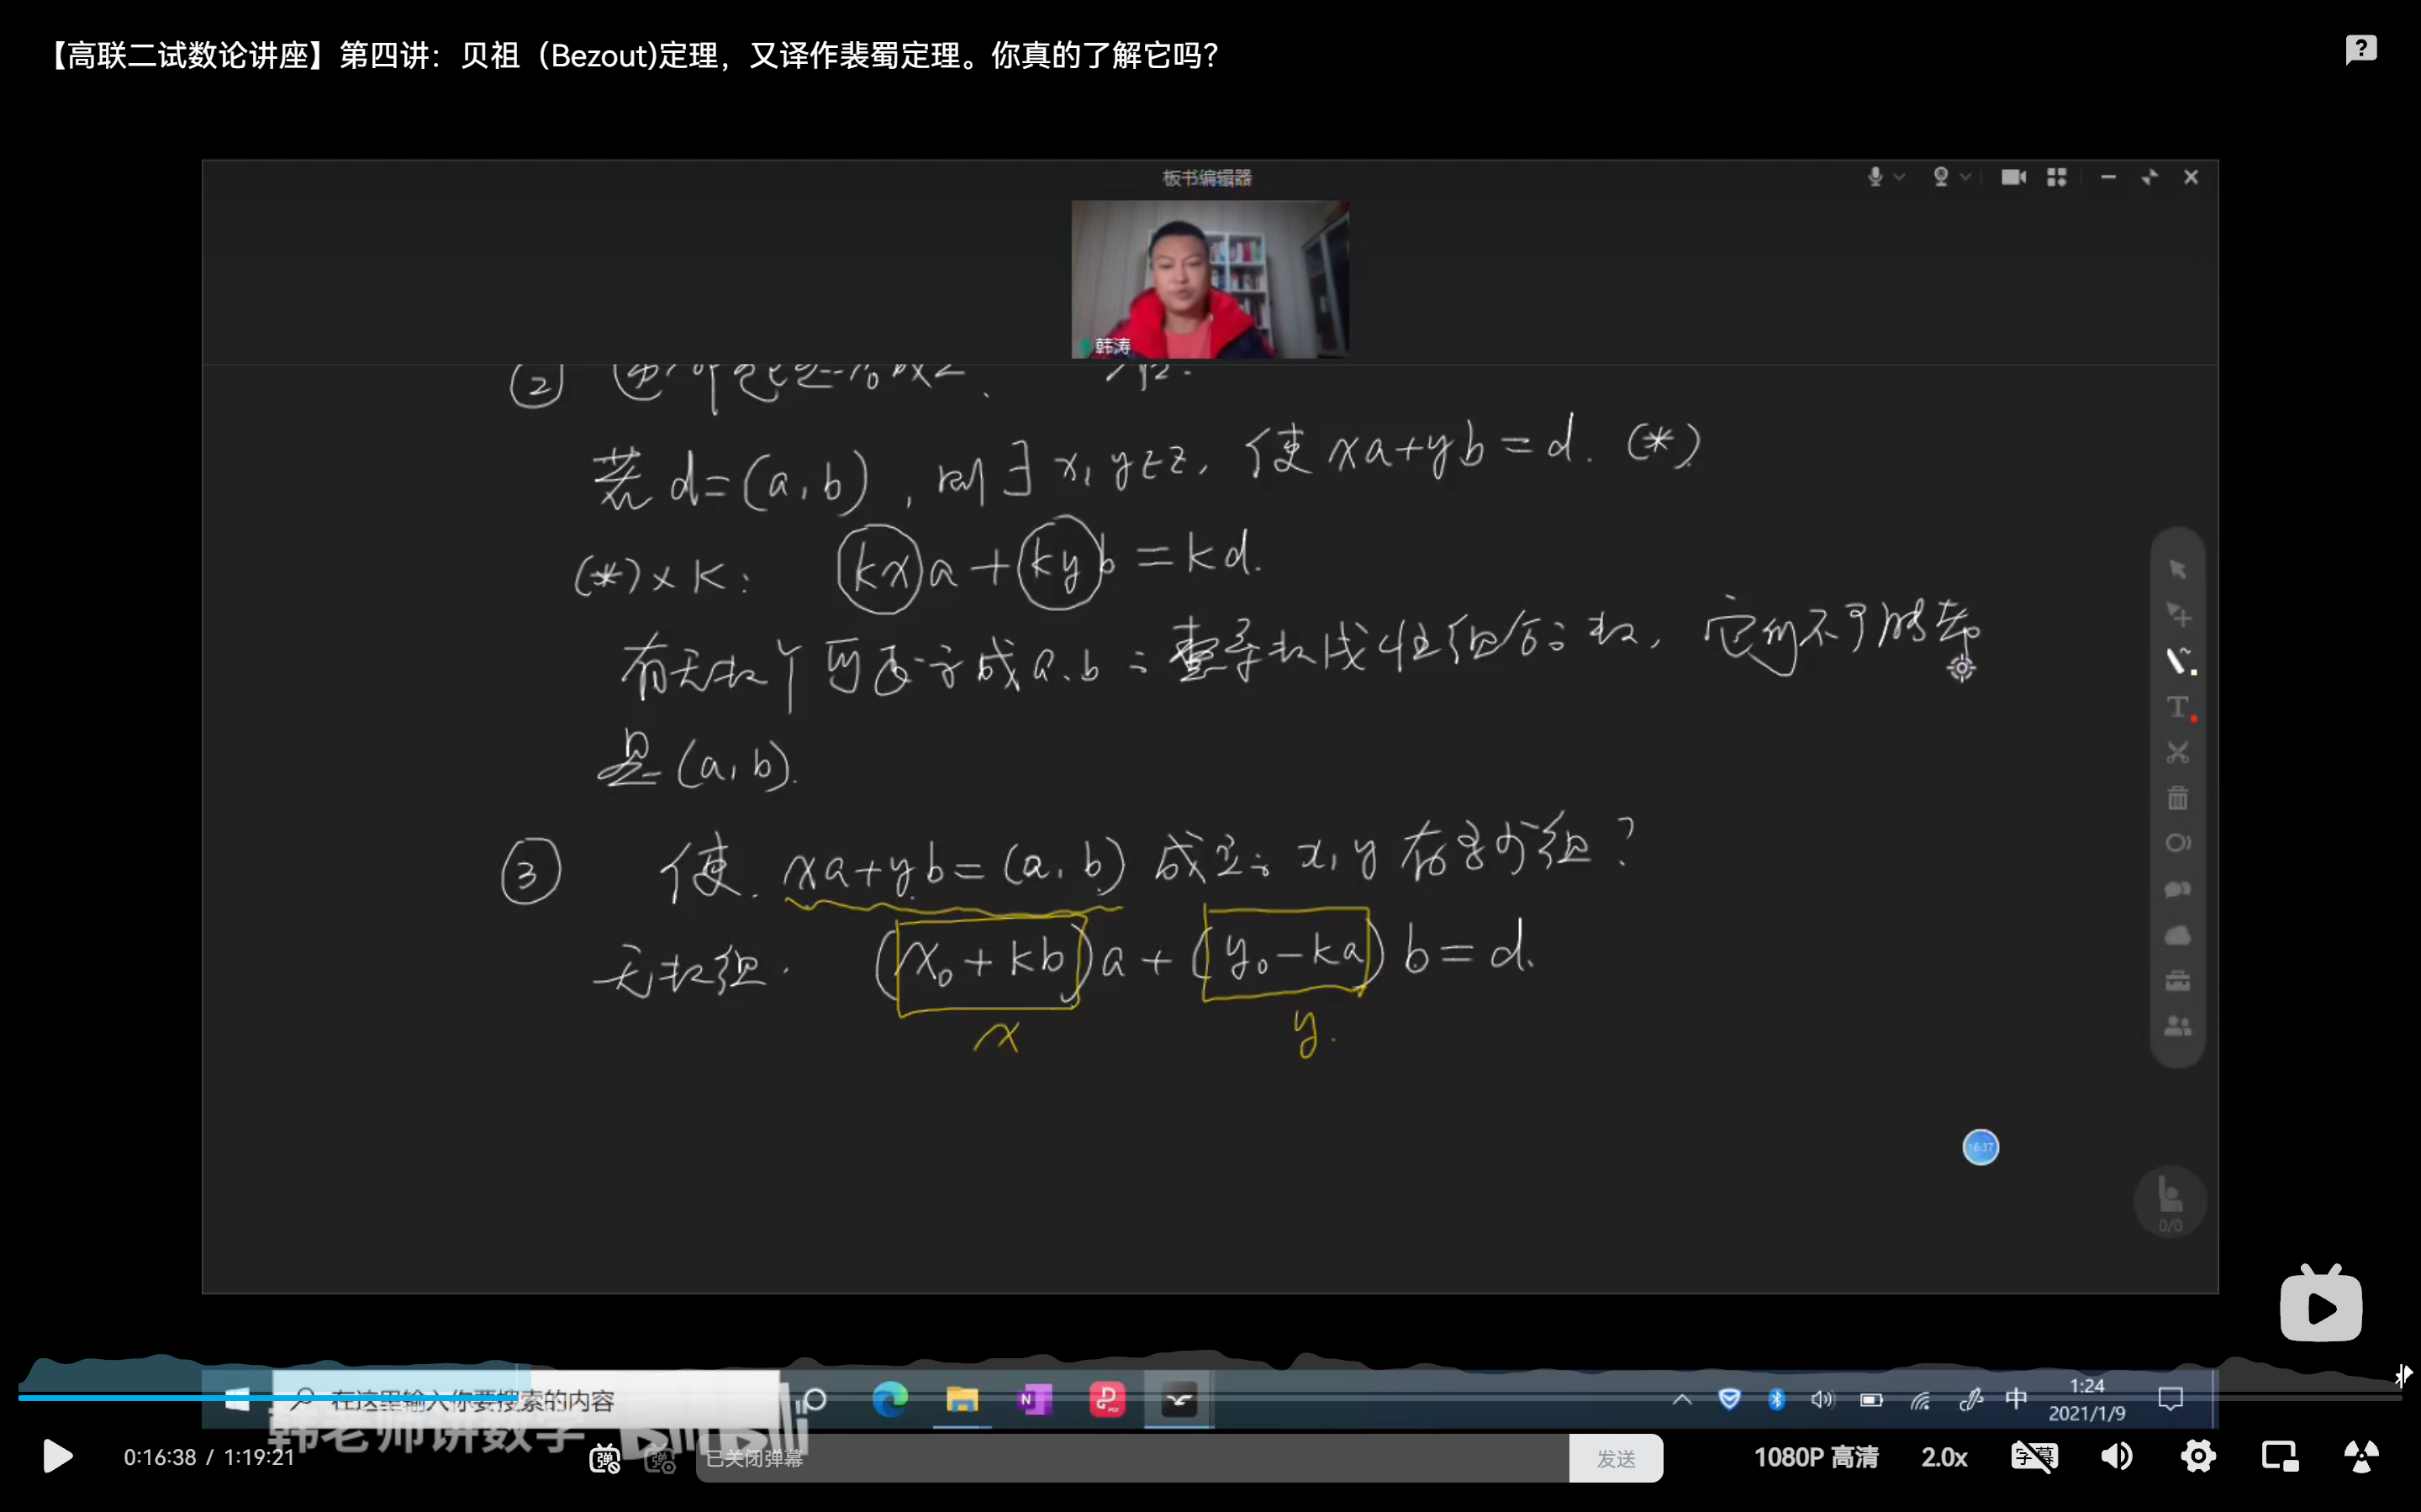 【高联二试数论讲座】第四讲：贝祖（Bezout)定理，又译作裴蜀定理。你真的了解它吗？
板书编辑器
韩涛
②
若 d=(a,b), 则∃x,y∈z, 使 xa+yb=d. (*)
(*)×K: (kx)a+(ky)b=kd.
有无数个可表示成a.b的整系数线性组合的数, 它们不可能都
是(a,b).
③ 使 xa+yb=(a,b) 成立的 x,y 有多少组?
无数组. (x₀+kb)a+(y₀-ka)b=d.
x y.
16:37
0/0
在这里输入你要搜索的内容
中
1:24
2021/1/9
韩老师讲数学
0:16:38 / 1:19:21
弹
弹
已关闭弹幕
发送
1080P 高清
2.0x
字幕